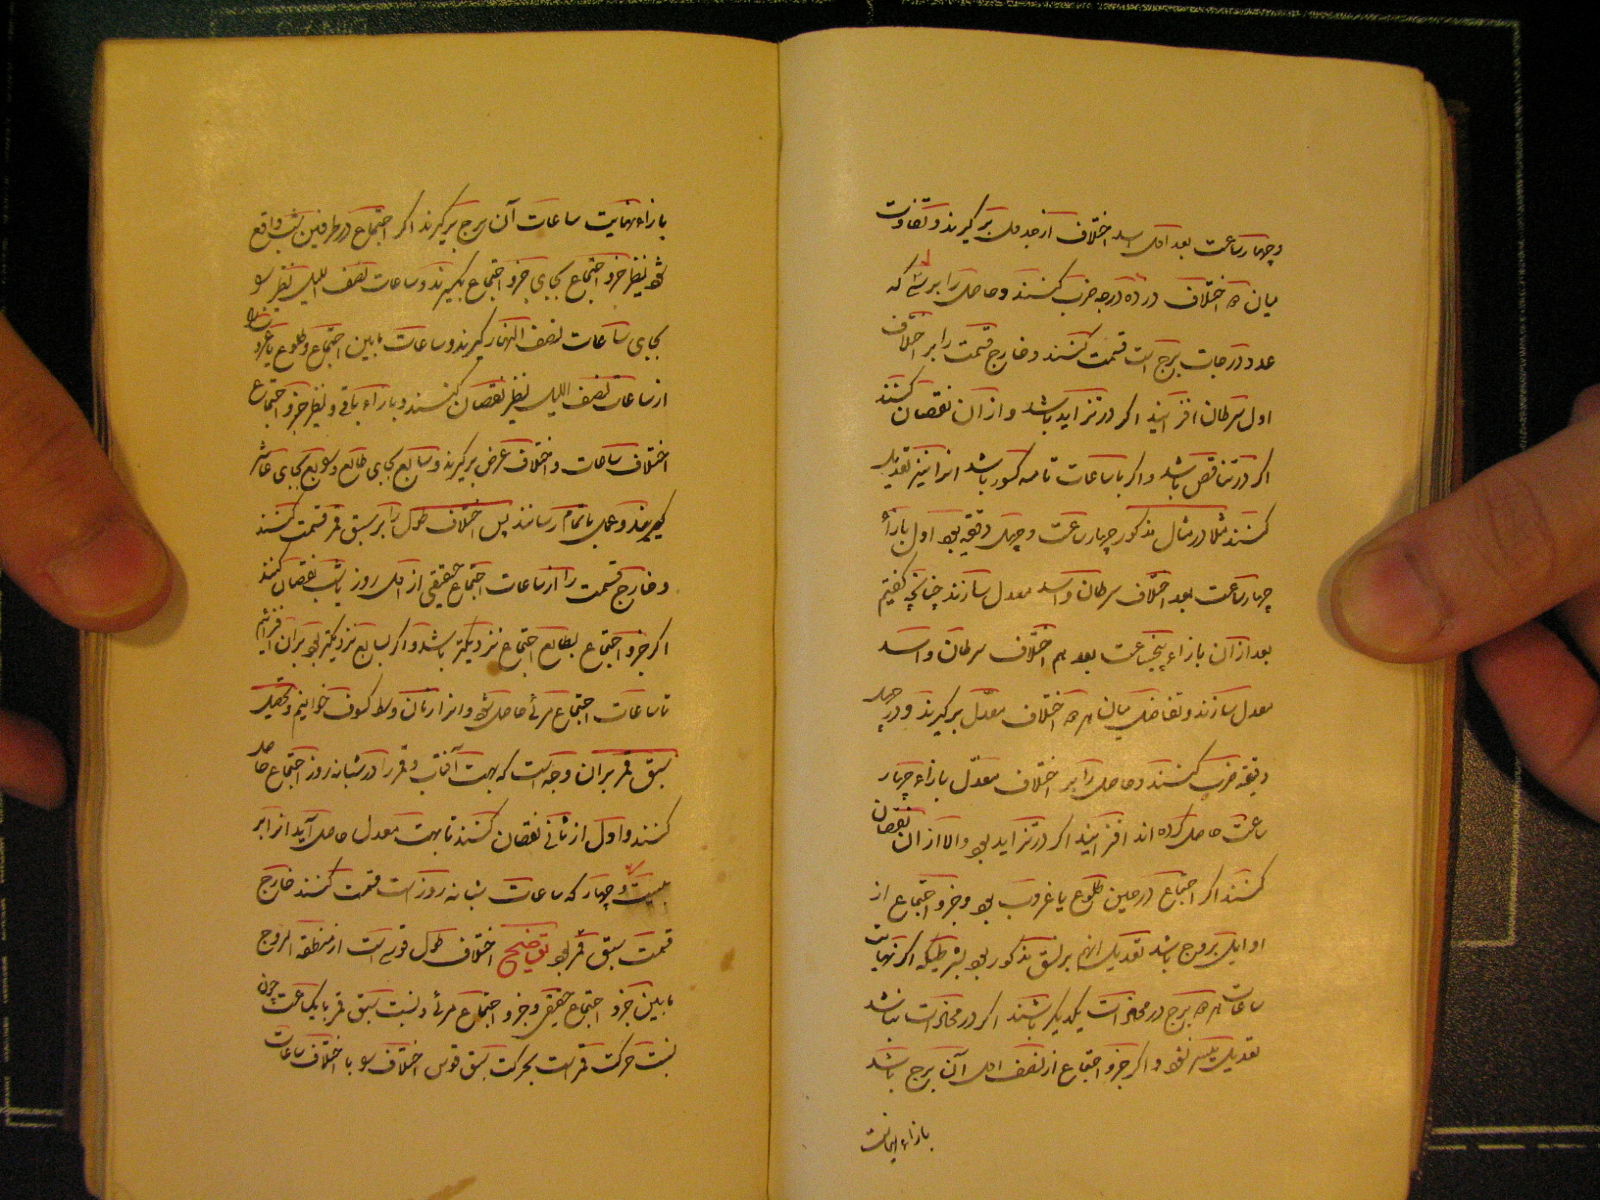 و چهار ساعت بعد اول اسد اختلاف از جدول برگیرند و تفاوت
میان دو اختلاف در ده درجه ضرب کنند و حاصل را بر سی که
عدد درجات برج است قسمت کنند و خارج قسمت را بر اختلاف
اول سرطان افزایند اکر در تزاید باشد و از آن نقصان کنند
اکر در تناقص باشد و اکر با ساعات تامه کسور باشد انرا نیز تعدیل
کنند مثلا در مثال مذکور چهار ساعت و چهل دقیقه بود اول بازأ
چهار ساعت بعد اختلاف سرطان و اسد معدل سازند چنانچه کفتیم
بعد از ان بازاء پنجساعت بعد هم اختلاف سرطان و اسد
معدل سازند و تفاضل میان هر دو اختلاف معدل برکیرند و در چهل
دقیقه ضرب کنند و حاصل را بر اختلاف معدل بازاء چهار
ساعت حاصل کرده اند افزایند اکر در تزاید بود والا از ان نقصان
کنند اکر اجتماع در حین طلوع یا غروب بود و جزو اجتماع از
اوایل بروج باشد تعدیل انهم بر نسق مذکور بود بشرطیکه اکر نهایت
ساعات هر دو برج در محاذات یکدیکر باشند اکر در محاذات نباشد
تعدیل میسر نشود و اکر جزو اجتماع از نصف اول آن برج باشد
بازاء نهایت
بازاء نهایت ساعات آن برج برکیرند اکر اجتماع در طرفین شب واقع
شود نظیر جزو اجتماع بجای جزو اجتماع بکیرند و ساعات نصف اللیل نظیر
بجای ساعات نصف النهار کیرند و ساعات مابین اجتماع و طلوع یا غروب
از ساعات نصف اللیل نظیر نقصان کنند و بازاء باقی و نظیر جزو اجتماع
اختلاف ساعات و اختلاف عرض برکیرند و سابع بجای طالع و رابع بجای عاشر
کیرند و عمل باتمام رسانند پس اختلاف طول را بر سبق قمر قسمت کنند
و خارج قسمت را از ساعات اجتماع حقیقی از اول روز یا شب نقصان کنند
اکر جزو اجتماع بطالع اجتماع نزدیکتر باشد و اکر بسابع نزدیکتر بود بران افزائیم
تا ساعات اجتماع مرئی حاصل شود و انرا زمان وسط کسوف خوانیم و تحصیل
سبق قمر بران وجه است که بهت آفتاب و قمر را در شبانه روز اجتماع حاصل
کنند و اول از ثانی نقصان کنند تا بهت معدل حاصل آید انرا بر
بیست و چهار که ساعات شبانه روز است قسمت کنند خارج
قسمت سبق قمر بود توضیح اختلاف طول قوسی است از منطقة البروج
مابین جزو اجتماع حقیقی و جزو اجتماع مرئی و نسبت سبق قمر با یکساعت چون
نسبت حرکت قمر است بحرکت سبق قوس اختلاف با اختلاف ساعات